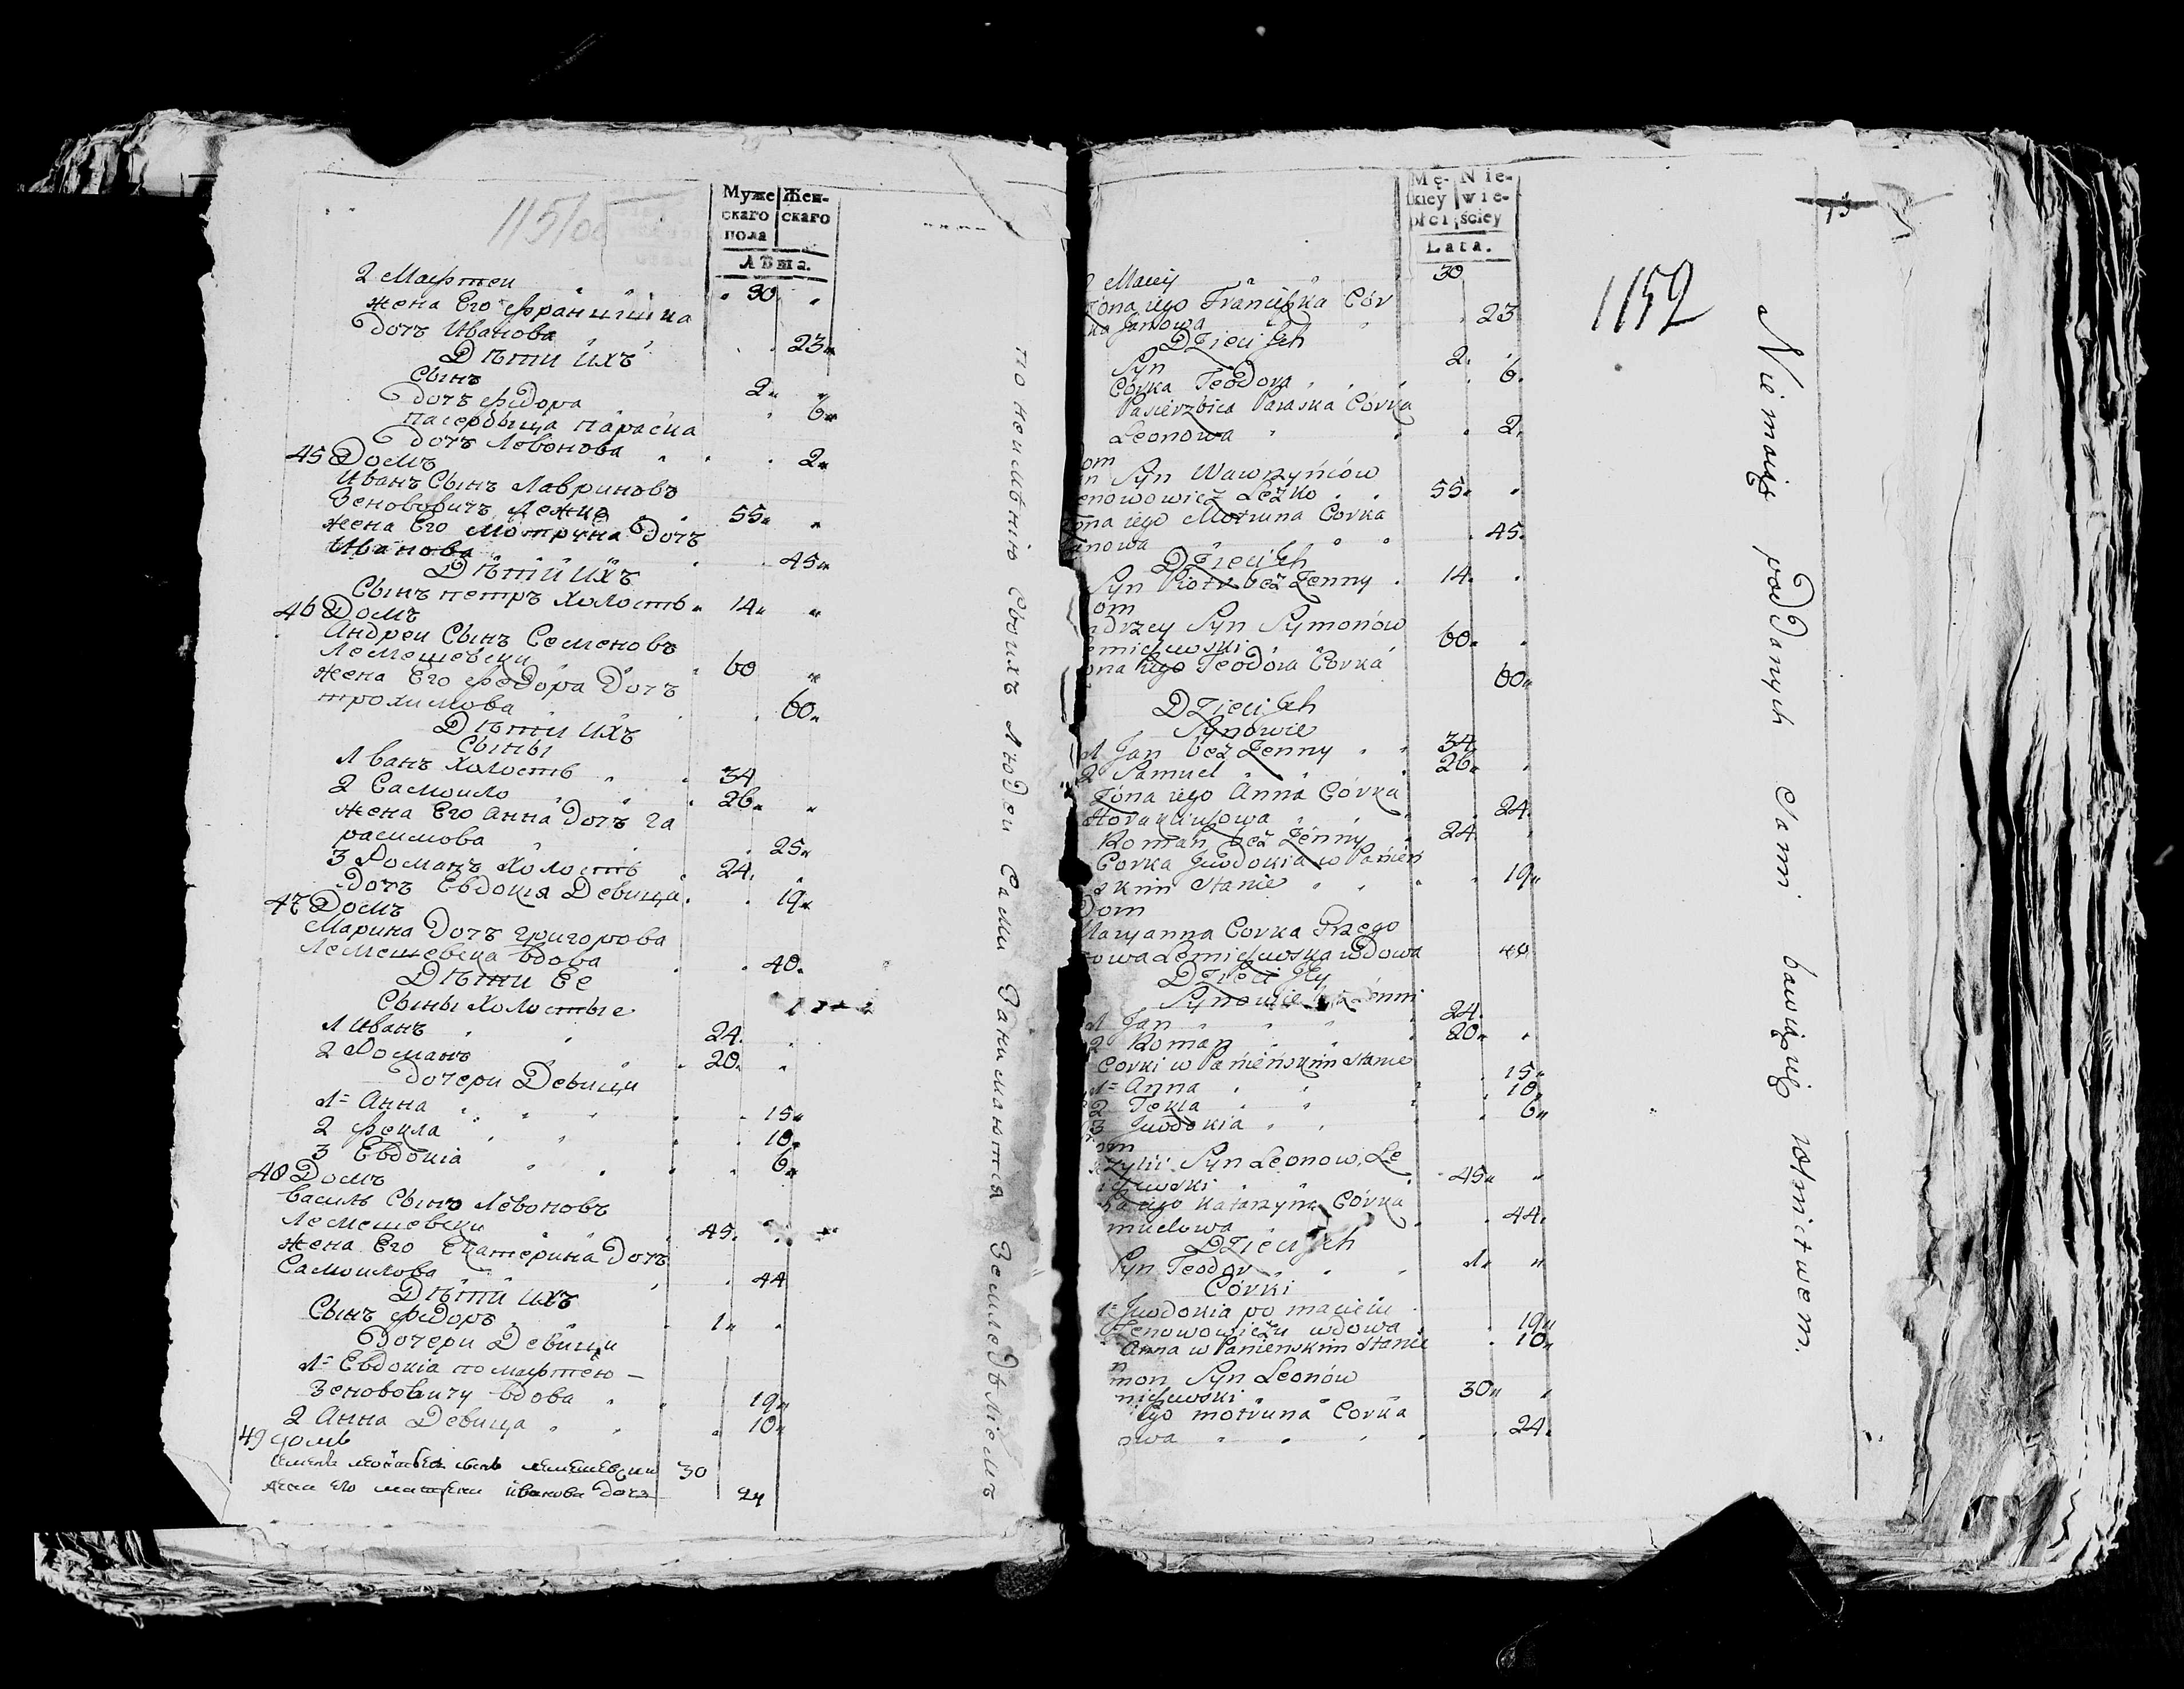 Муже Жен-
скаго скаго
пола
Лѣта.
2 Мафтеи 30
жена Его Францишка
Дотъ Иванова 23
Дѣти ихъ
Сынъ 2
дотъ федора 6
пасербица параска
дотъ Левонова 2
45 Домъ
Иванъ Сынъ Лавриновъ
Зенововичъ Лежко 55
жена Его Мотруна Дотъ
Иванова 45
Дѣти ихъ
Сынъ петръ холостъ 14
46 Домъ
Андреи Сынъ Семеновъ
Лемешевски 60
жена Его федора Дотъ
трохимова 60
Дѣти ихъ
Сыны
1 Иванъ холостъ 34
2 Самоило 26
жена Его анна дотъ га
расимова 25
3 Романъ холостъ 24
дотъ Евдокия Девица 19
47 Домъ
Марина Дотъ григорова
Лемешевска вдова 40
Дѣти Ее
Сыны холостые
1 Иванъ 24
2 Романъ 20
дочери Девици
1= Анна 15
2 фекла 10
3 Евдокіа 6
48 Домъ
василь Сынъ Левоновъ
Лемешевски 45
жена Его Екатерина Дотъ
Самоилова 44
Дѣти ихъ
Сынъ федоръ 1
Дочери Девици
1= Евдокіа по мафтею
Зенововичу вдова 19
2 Анна Девица 10
49 домъ
30
жена его иванова дотъ 24
по неимѣнію Своихъ Людеи Сами Занимаются Земледѣліемъ
Mę- Nie-
skiey wie-
płci ściey
Lata.
1152
2 Maciey 30
Żona iego Franciszka Cór
ka Janowa 23
Dzieci Jch
Syn 2
Córka Teodora 6
Pasierzbica Paraska Córka
Leonowa 2
om
n Syn Wawrzyńców
enowowicz Leżko 55
ona iego Motruna Corka
anowa 45
Dzieci Jch
Syn Piotr bez Żenny 14
om
ndrzey Syn Symonów
emiszewski 60
ona iego Teodora Córka
60
Dzieci Jch
Synowie
1 Jan bez Żenny 34
2 Samuel 26
Żona iego Anna Córka
24
Roman bez Żenny 24
Corka Jwdokia w Panień
skim stanie 19
Dom
Maryanna Corka Grzego
rowa Lemiszewska wdowa 40
Dzieci Jey
Synowie bez Żenni
1 Jan 24
2 Roman 20
Corki w Panieńskim stanie
1= Anna 15
2 Tekla 10
3 Jwdokia 6
om
zylii Syn Leonow Le
iszewski 45
na iego Katarzyna Córka
muelowa 44
Dzieci Jch
Syn Teodor 1
Córki
1= Jwdokia po macieiu
Zenowowiczu wdowa 19
Anna w Panienskim stanie 10
m
mon Syn Leonów
miszewski 30
iego motruna Corka
owa 24
Nie maiąc poddanych sami bawią się rolnictwem.